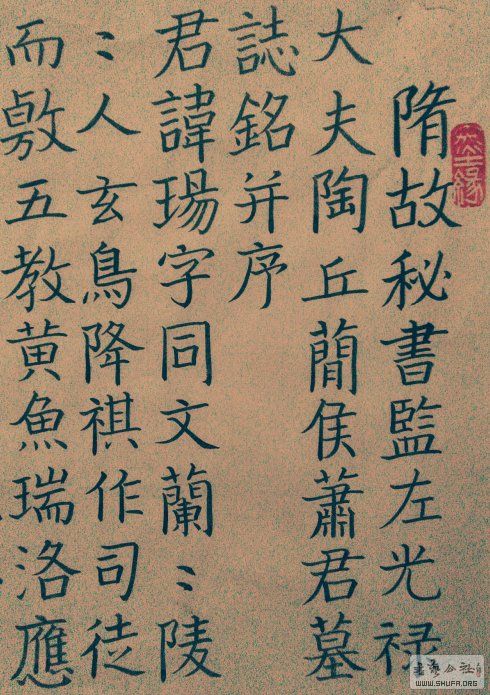 隋故秘書監左光禄
大夫陶丘蕑侯蕭君墓
誌銘并序
君諱瑒字同文蘭〻陵
〻人玄鳥降祺作司徒
而敷五教黄魚瑞洛應
WWW.SHUFA.ORG